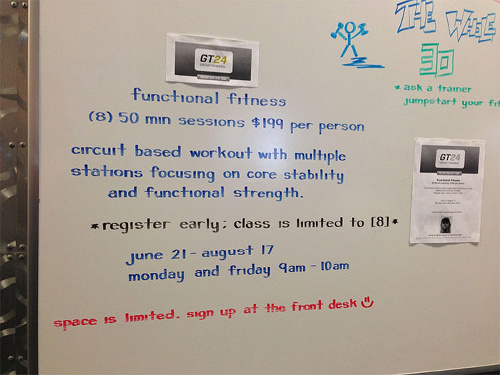 THE WAVE
30
* ask a trainer
jumpstart your fit
GT24
functional fitness
(8) 50 min sessions $199 per person
circuit based workout with multiple
stations focusing on core stability
and functional strength.
*register early; class is limited to [8]*
june 21 - august 17
monday and friday 9am - 10am
space is limited. sign up at the front desk
GT24
Functional Fitness